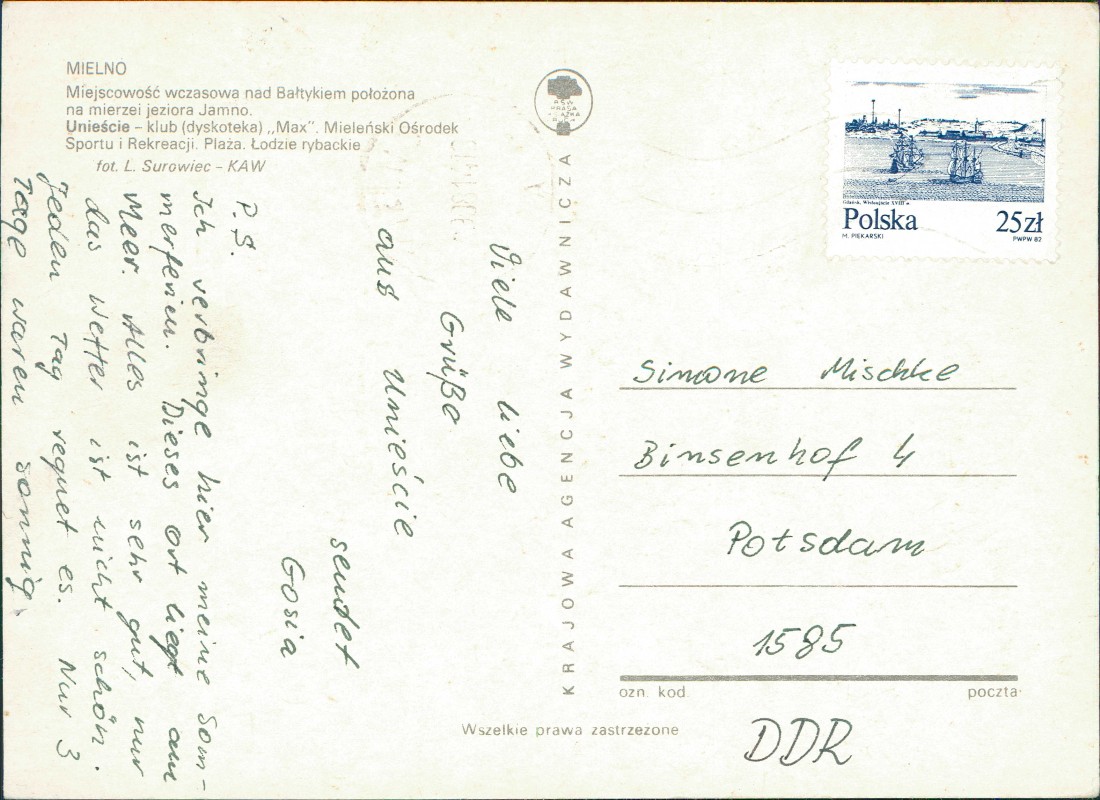 MIELNO
Miejscowość wczasowa nad Bałtykiem położona
na mierzei jeziora Jamno.
Unieście – klub (dyskoteka) „Max”. Mieleński Ośrodek
Sportu i Rekreacji. Plaża. Łodzie rybackie
fot. L. Surowiec – KAW
Viele liebe
Grüße
aus Unieście
sendet
Gosia
P.S.
Ich verbringe hier meine Som-
merferien. Dieses Ort liegt am
Meer. Alles ist sehr gut, nur
das Wetter ist nicht schön.
Jeden Tag regnet es. Nur 3
Tage waren sonnig.
KRAJOWA AGENCJA WYDAWNICZA
RSW
PRASA
KSIĄŻKA
RUCH
Gdańsk, Wisłoujście XVIII w.
Polska 25 zł
M. PIEKARSKI PWPW 82
Simone Mischke
Binsenhof 4
Potsdam
1585
ozn. kod. poczta
DDR
Wszelkie prawa zastrzeżone